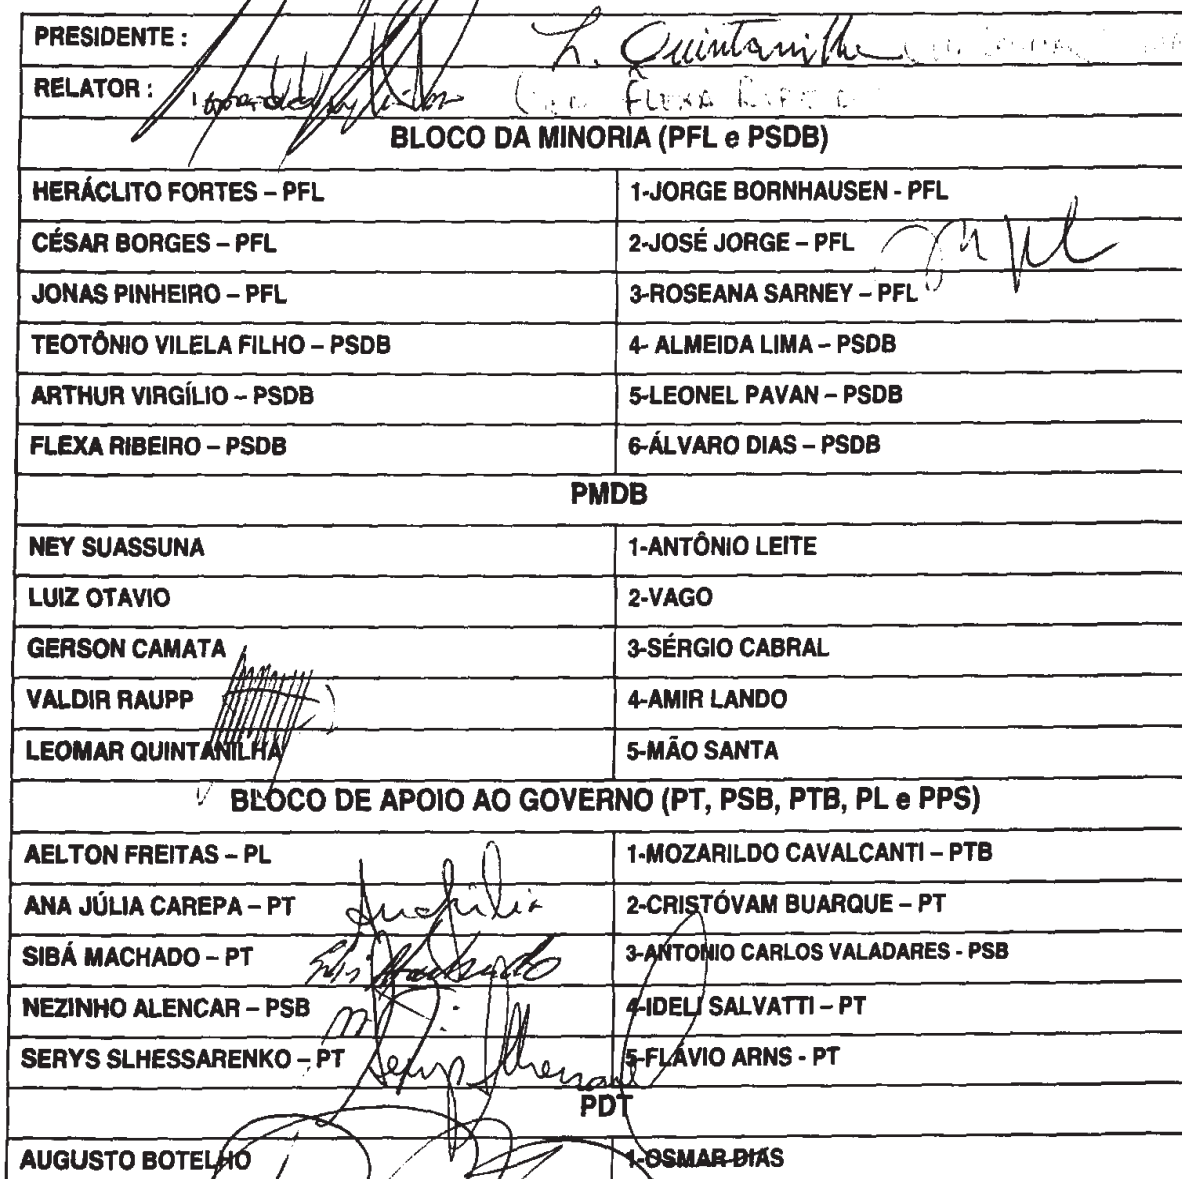 PRESIDENTE : L. Quintanilha
RELATOR : FLEXA RIBEIRO
BLOCO DA MINORIA (PFL e PSDB)
HERÁCLITO FORTES – PFL 1-JORGE BORNHAUSEN - PFL
CÉSAR BORGES – PFL 2-JOSÉ JORGE – PFL
JONAS PINHEIRO – PFL 3-ROSEANA SARNEY – PFL
TEOTÔNIO VILELA FILHO – PSDB 4- ALMEIDA LIMA – PSDB
ARTHUR VIRGÍLIO – PSDB 5-LEONEL PAVAN – PSDB
FLEXA RIBEIRO – PSDB 6-ÁLVARO DIAS – PSDB
PMDB
NEY SUASSUNA 1-ANTÔNIO LEITE
LUIZ OTAVIO 2-VAGO
GERSON CAMATA 3-SÉRGIO CABRAL
VALDIR RAUPP 4-AMIR LANDO
LEOMAR QUINTANILHA 5-MÃO SANTA
BLOCO DE APOIO AO GOVERNO (PT, PSB, PTB, PL e PPS)
AELTON FREITAS – PL 1-MOZARILDO CAVALCANTI – PTB
ANA JÚLIA CAREPA – PT 2-CRISTÓVAM BUARQUE – PT
SIBÁ MACHADO – PT Sibá Machado 3-ANTONIO CARLOS VALADARES - PSB
NEZINHO ALENCAR – PSB 4-IDELI SALVATTI – PT
SERYS SLHESSARENKO – PT 5-FLÁVIO ARNS - PT
PDT
AUGUSTO BOTELHO 1-OSMAR DIAS